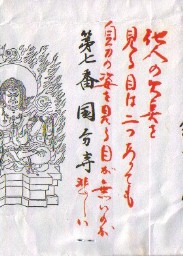 他人の を
見る目は二つあっても
自分の姿を見る目が無いのが
悲しい
第七番 国分寺